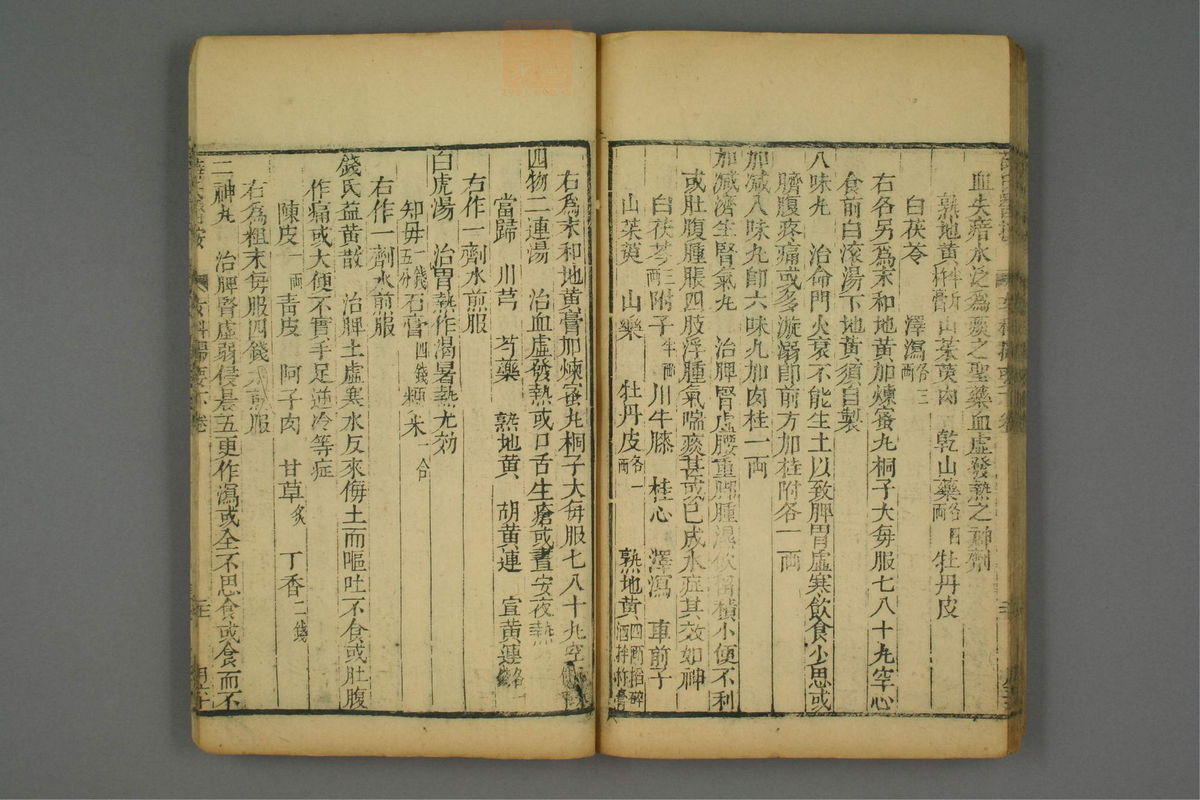 血失瘖水泛為痰之聖藥血虛發熱之神劑
熟地黃 杵膏 山茱萸肉 乾山藥 各四両 牡丹皮
白茯苓 澤瀉 各三両
右各另為末和地黃加煉蜜丸桐子大每服七八十丸空心
食前白滾湯下地黃須自製
八味丸 治命門火衰不能生土以致脾胃虛寒飲食少思或
臍腹疼痛或多漩溺即前方加桂附各一両
加減八味丸即六味丸加肉桂一両
加減濟生腎氣丸 治脾腎虛腰重脚腫濕飲稱積小便不利
或肚腹腫脹四肢浮腫氣喘痰甚或已成水症其效如神
白茯苓 三両 附子 半両 川牛膝 桂心 澤瀉 車前子
山茱萸 山藥 牡丹皮 各一両 熟地黃 四両掐碎酒拌杵膏
右為末和地黃膏加煉蜜丸桐子大每服七八十丸空
四物二連湯 治血虛發熱或口舌生瘡或晝安夜熱
當歸 川芎 芍藥 熟地黃 胡黃連 宣黃連
右作一劑水煎服
白虎湯 治胃熱作渴暑熱尤効
知毋 一錢五分 石膏 四錢 粳米 一合
右作一劑水煎服
錢氏益黃散 治脾土虛寒水反來侮土而嘔吐不食或肚腹
作痛或大便不實手足逆冷等症
陳皮 一両 青皮 阿子肉 甘草 炙 丁香 二錢
右為粗末每服四錢水煎服
二神丸 治脾腎虛弱侵晨五更作瀉或全不思食或食而不
女科撮要下卷